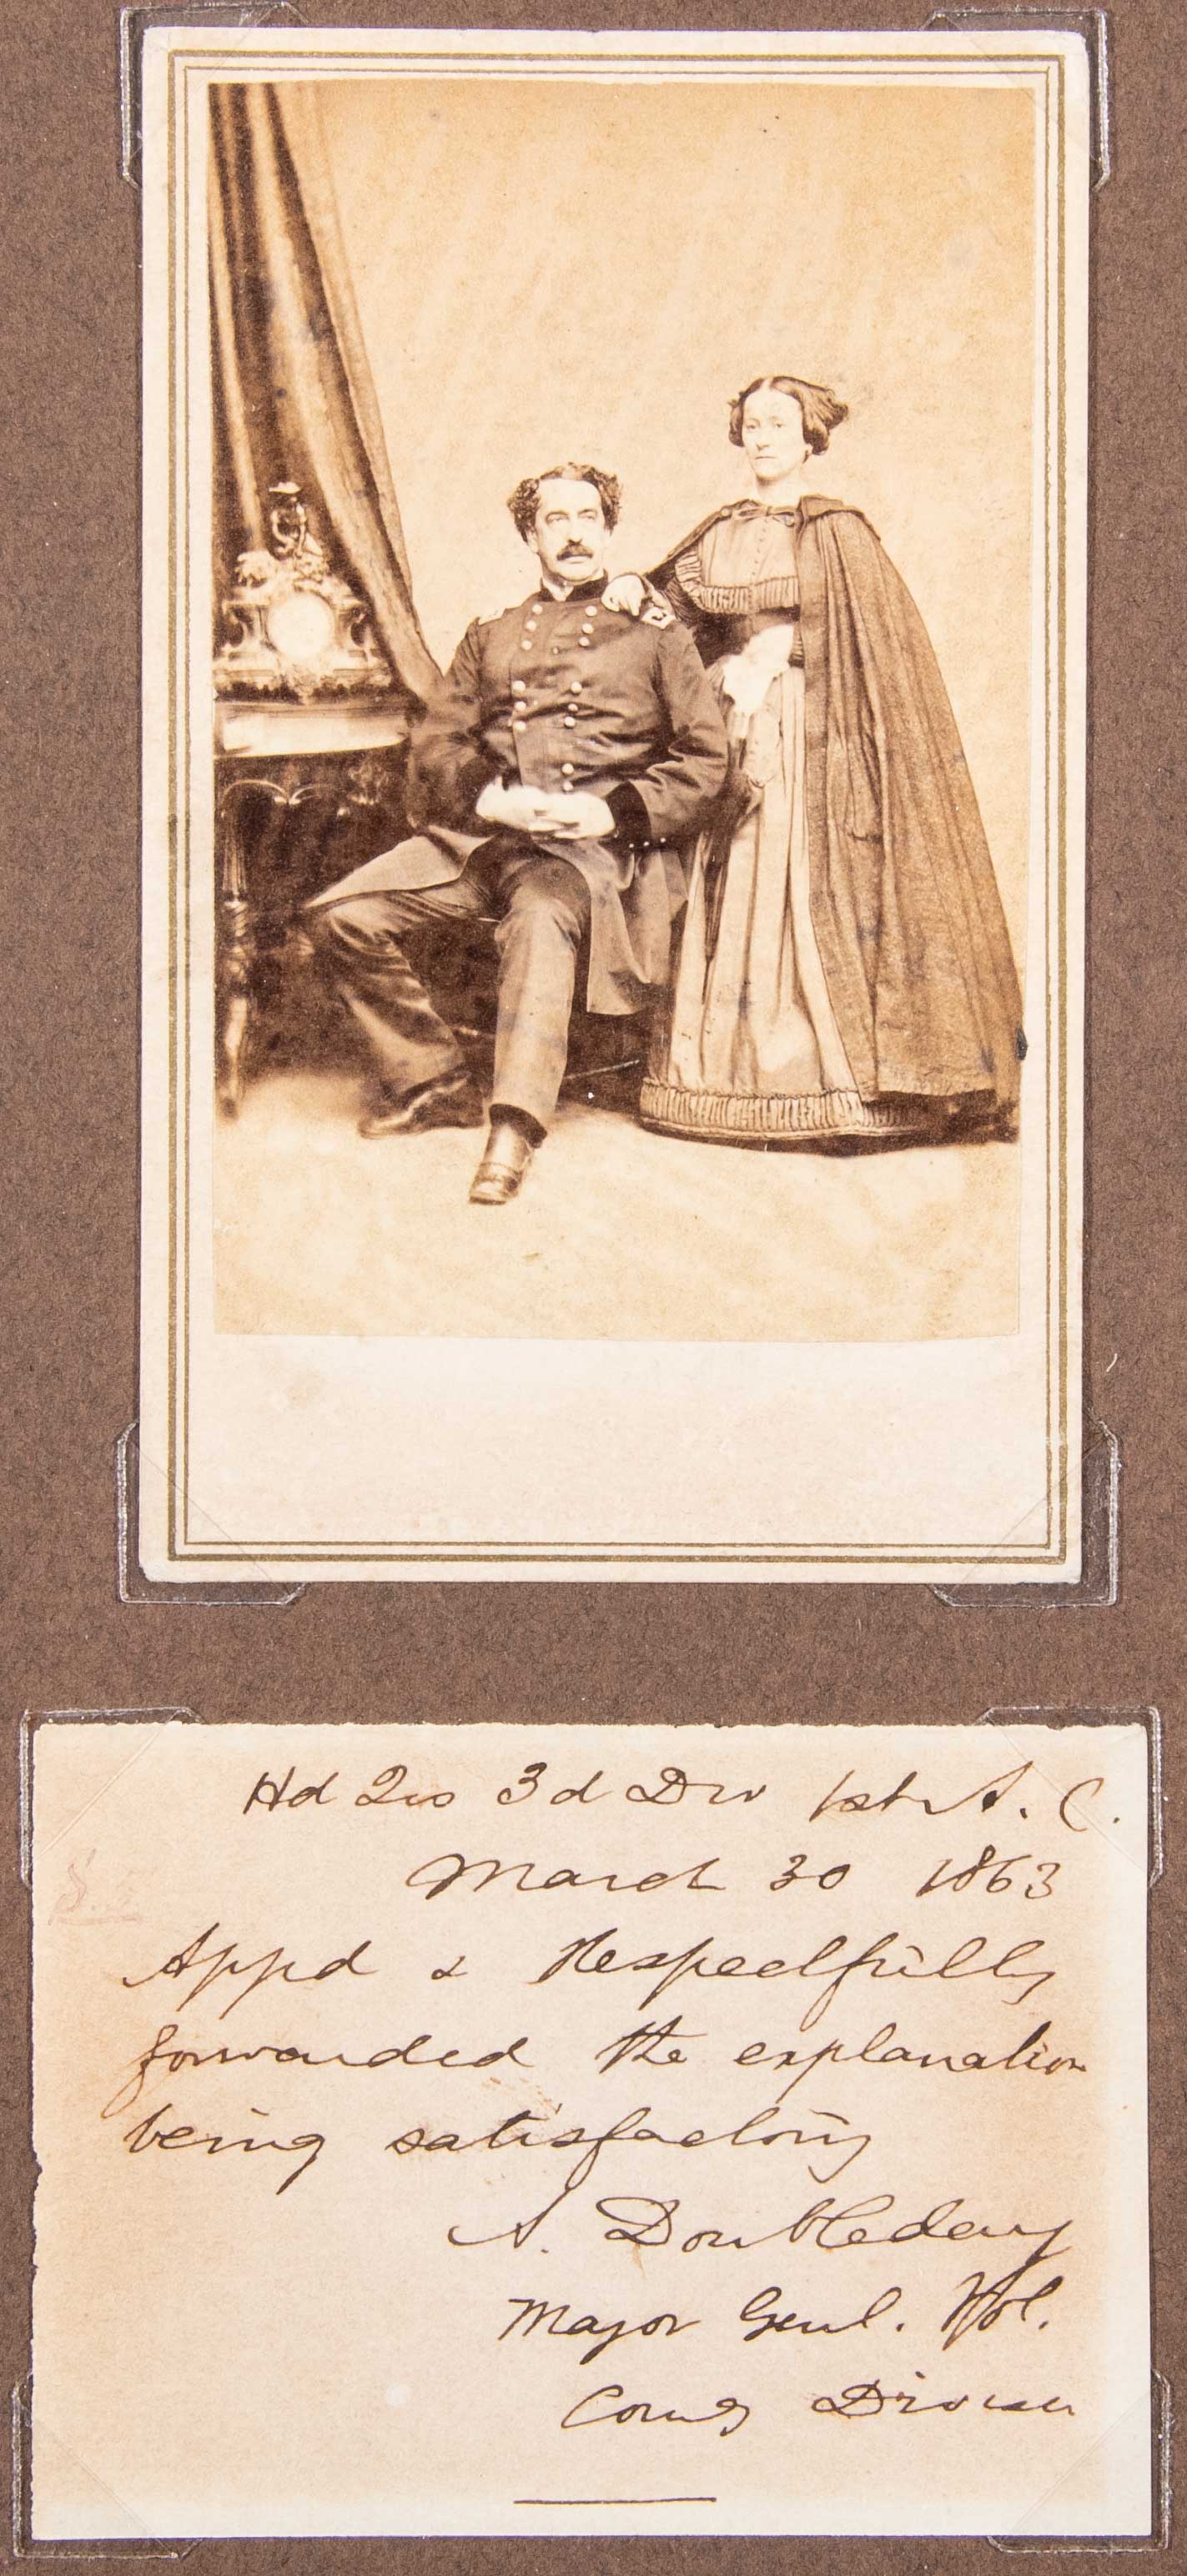 Hd Qrs 3d Div 1st A. C.
March 30 1863
Appd & Respectfully
forwarded the explanation
being satisfactory
A. Doubleday
Major Genl. Vol.
Comg Division